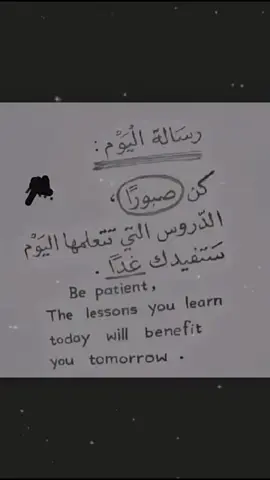 رسَالة الْيَوْم :
كن صبورًا ،
الدّروس التي تتعلمها اليَوْم
سَتفيدك غدًا .
Be patient,
The lessons you learn
today will benefit
you tomorrow .